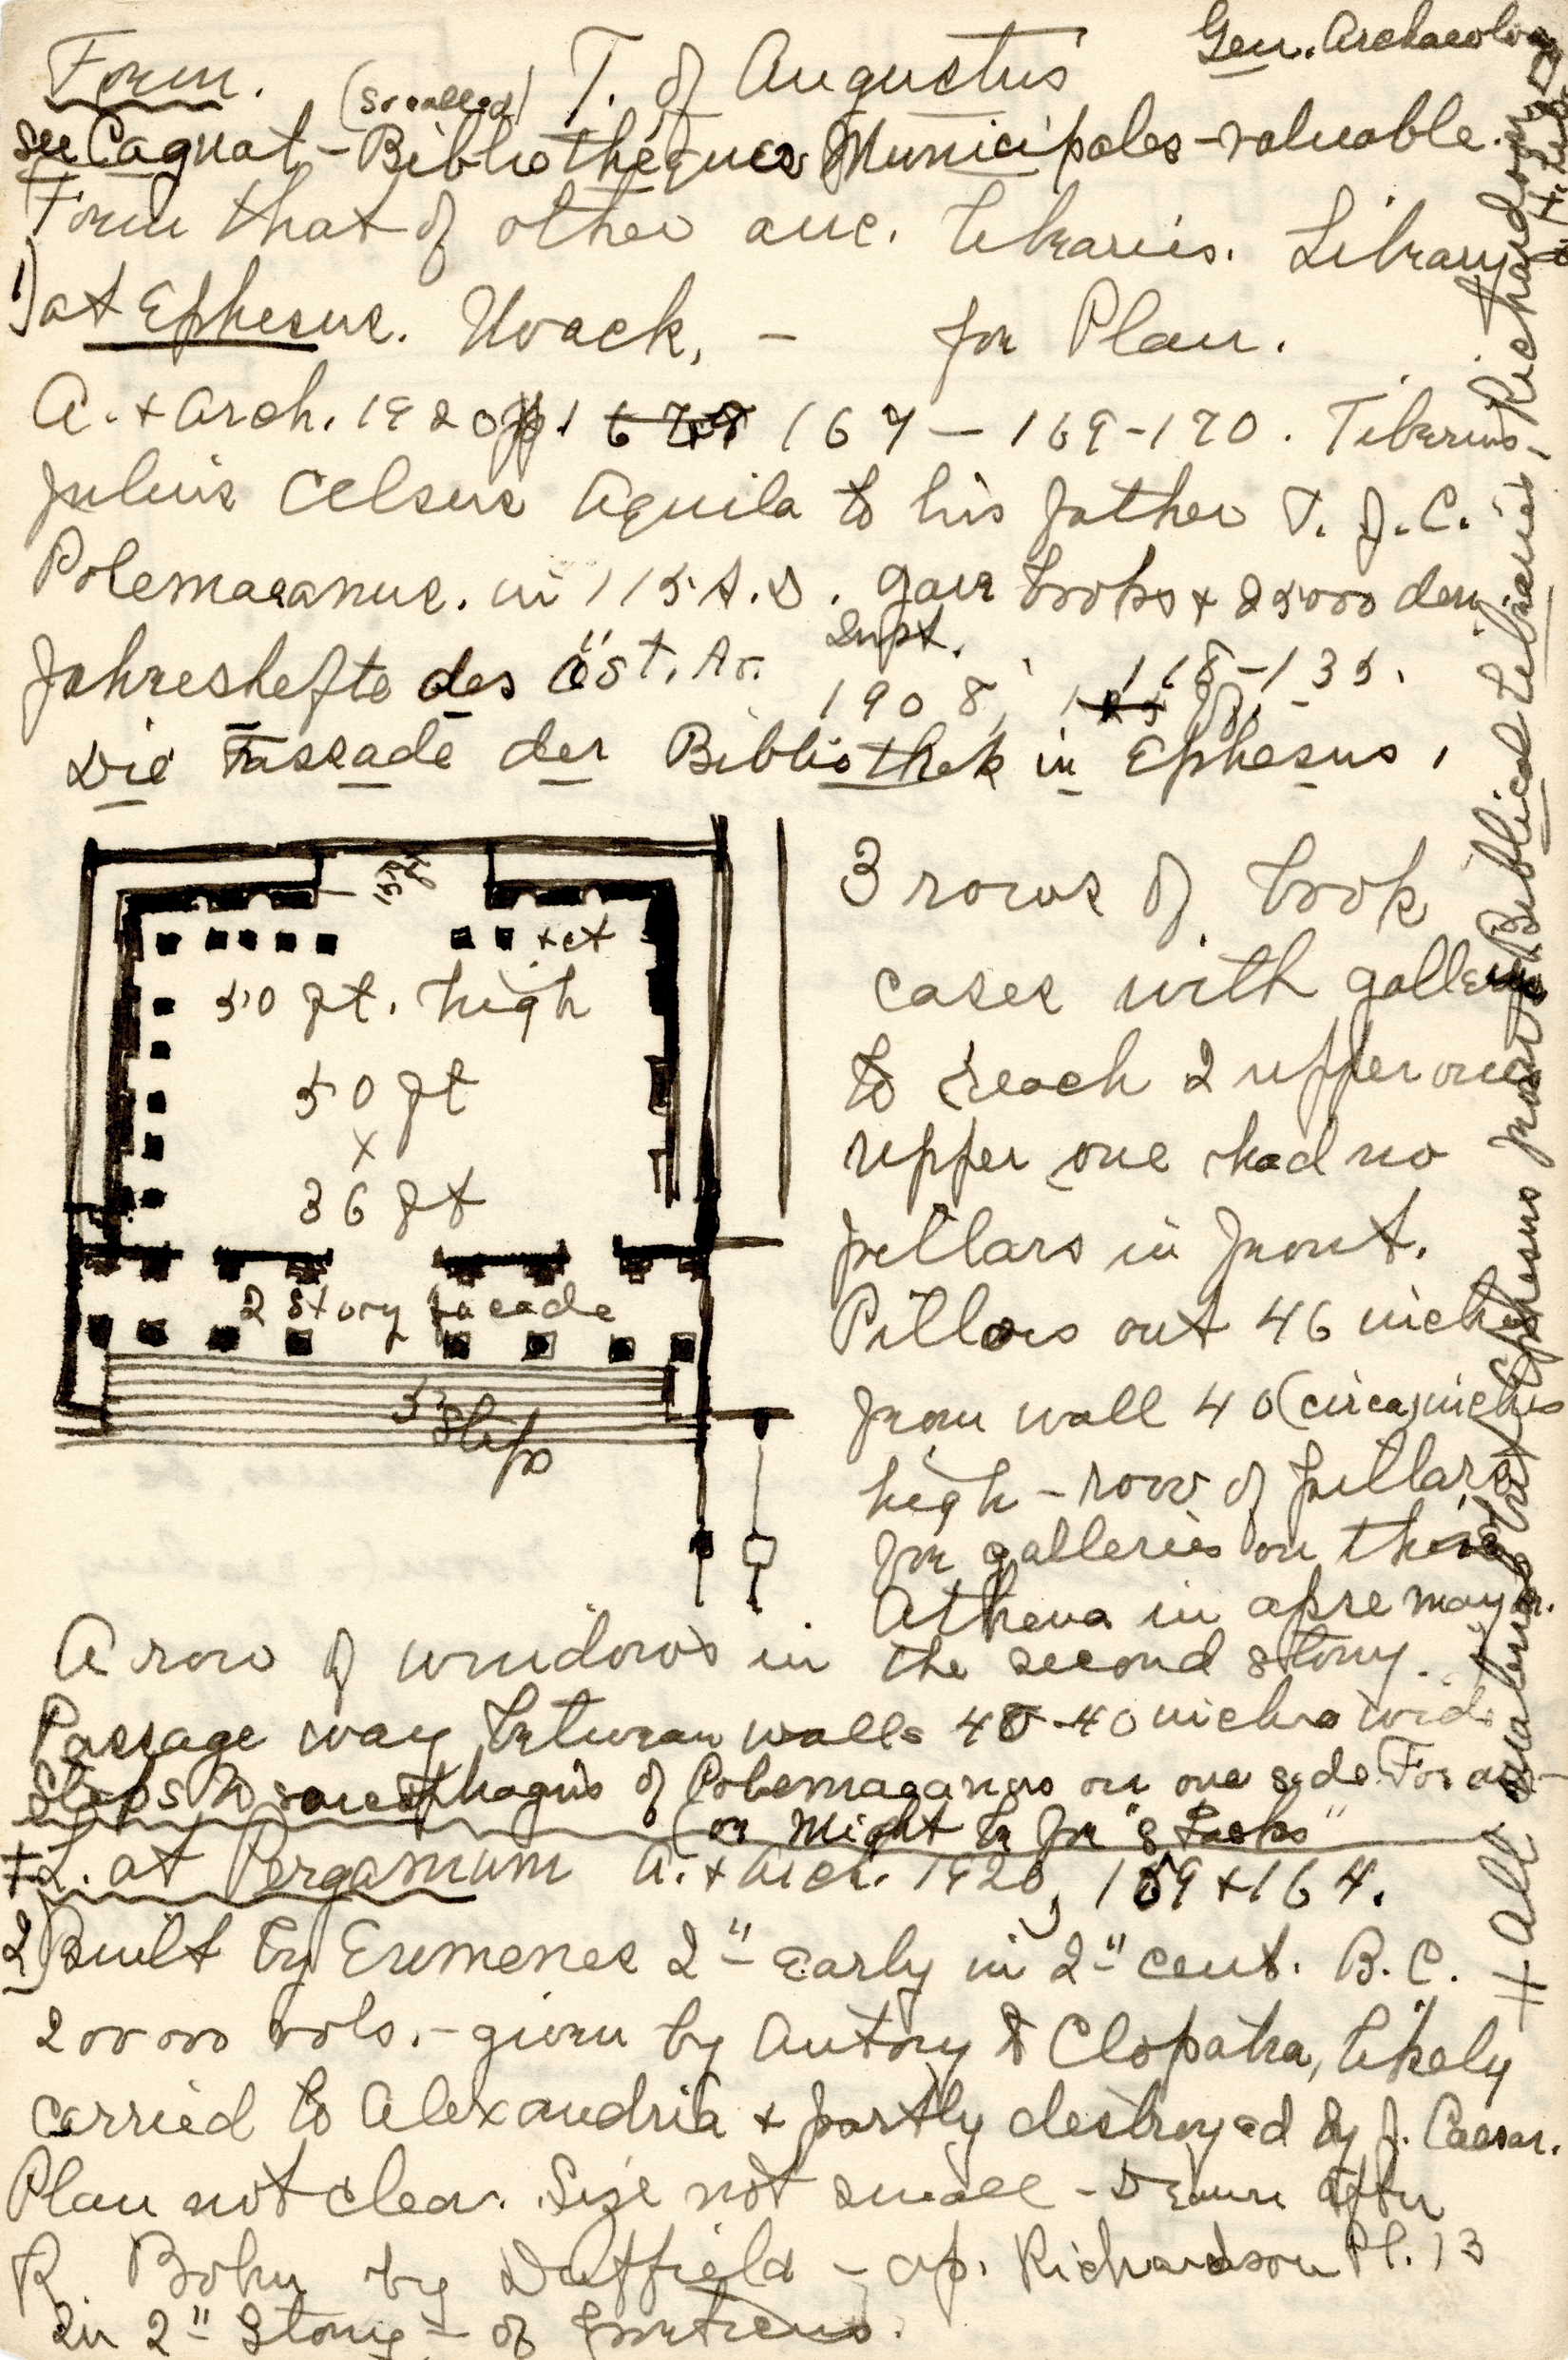 Gen. Archaeology
Form. (so called) T. of Augustus
see Cagnat - Bibliotheques Municipales - valuable.
Form that of other anc. libraries. Library
1) at Ephesus. Noack, - for Plan.
A. + Arch. 1920 pp. 167 - 169-170. Tiberius
Julius Celsus Aquila to his father T. J. C.
Polemaeanus. in 115 A.D. gave books & 25000 den
Jahreshefte des Öst. Ar. Inst. 1908, 118-135.
Die Fassade der Bibliothek in Ephesus,
+ct
50 ft. high
50 ft
x
36 ft
2 story facade
Steps
3 rows of book
cases with gallery
to reach 2 upper ones
upper one had no
pillars in front.
Pillars out 46 inches
from wall 40 (circa) inches
high - row of pillars
for galleries on this
Athena in apse may
A row of windows in the second story.
Passage way between walls 40 inches wide
Steps to sarcophagus of Polemaeanus on one side. For
(or Might be for "stacks"
+ L. at Pergamum A. + Arch. 1920, 159 + 164.
2) Built by Eumenes 2" - Early in 2" cent. B.C.
200000 vols. - given by Antony to Clopatra, likely
carried to Alexandria & partly destroyed by J. Caesar.
Plan not clear. Size not small - Drawn after
R. Bohn by Duffield - ap. Richardson Pl. 13
In 2" Story - of
+ All but Ephesus from Biblical Libraries, Richardson